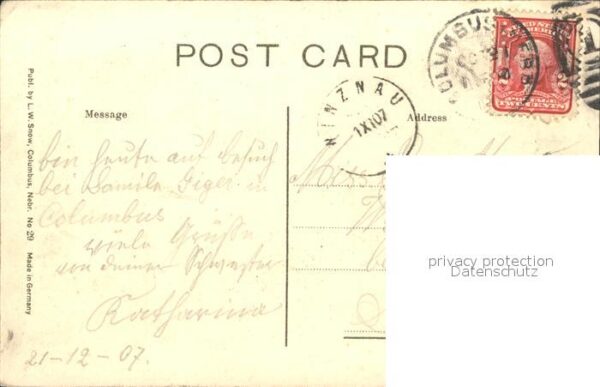 POST CARD
COLUMBUS NEBR
TWO CENTS
WINZNAU
1 XI 07
Message
Address
bin heute auf besuch
bei Familie Giger in
Columbus
viele Grüsse
von deiner Schwester
Katharina
21-12-07.
Miss
privacy protection
Datenschutz
Publ. by L. W. Snow, Columbus, Nebr. No 29 Made in Germany